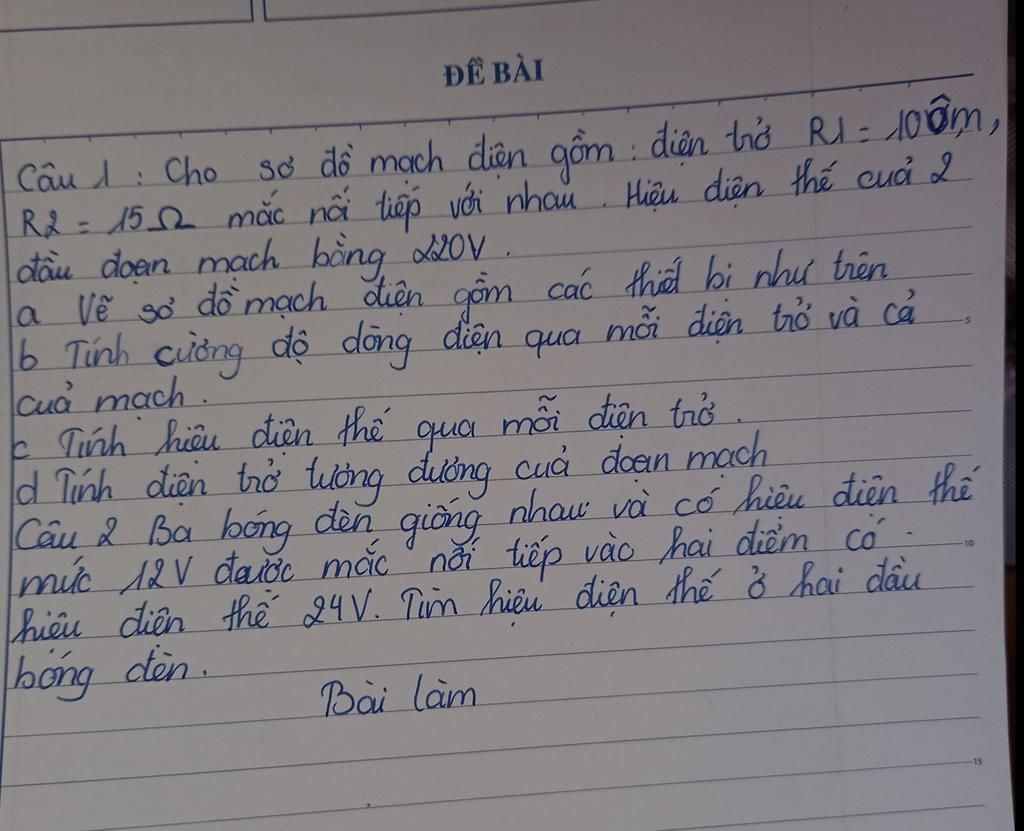 ĐỀ BÀI
Câu 1 : Cho sơ đồ mạch điện gồm : điện trở R1 = 10 Ôm,
R2 = 15 Ω mắc nối tiếp với nhau . Hiệu điện thế cuả 2
đầu đoạn mạch bằng 220V .
a Vẽ sơ đồ mạch điện gồm các thiết bị như trên
b Tính cường độ dòng điện qua mỗi điện trở và cả
cuả mạch .
c Tính hiệu điện thế qua mỗi điện trở .
d Tính điện trở tương đương cuả đoạn mạch
Câu 2 Ba bóng đèn giống nhau và có hiệu điện thế
mức 12V được mắc nối tiếp vào hai điểm có
hiệu điện thế 24V. Tìm hiệu điện thế ở hai đầu
bóng đèn .
Bài làm
5
10
15